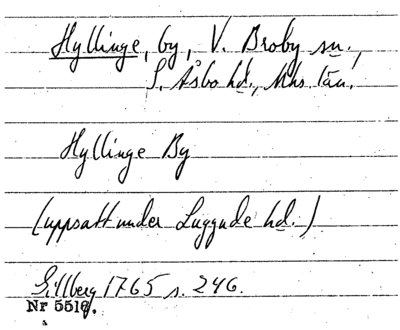 Hyllinge, by, V. Broby sn.,
S. Åsbo hd., Mhs. län.
Hyllinge By
(uppsatt under Luggude hd.)
Gillberg 1765 s. 246.
Nr 5516.